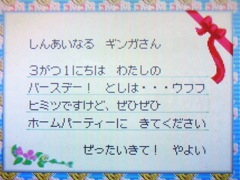 しんあいなる　ギンガさん
３がつ１にちは　わたしの
バースデー！　としは・・・ウフフ
ヒミツですけど、ぜひぜひ
ホームパーティーに　きてください
ぜったいきて！　やよい